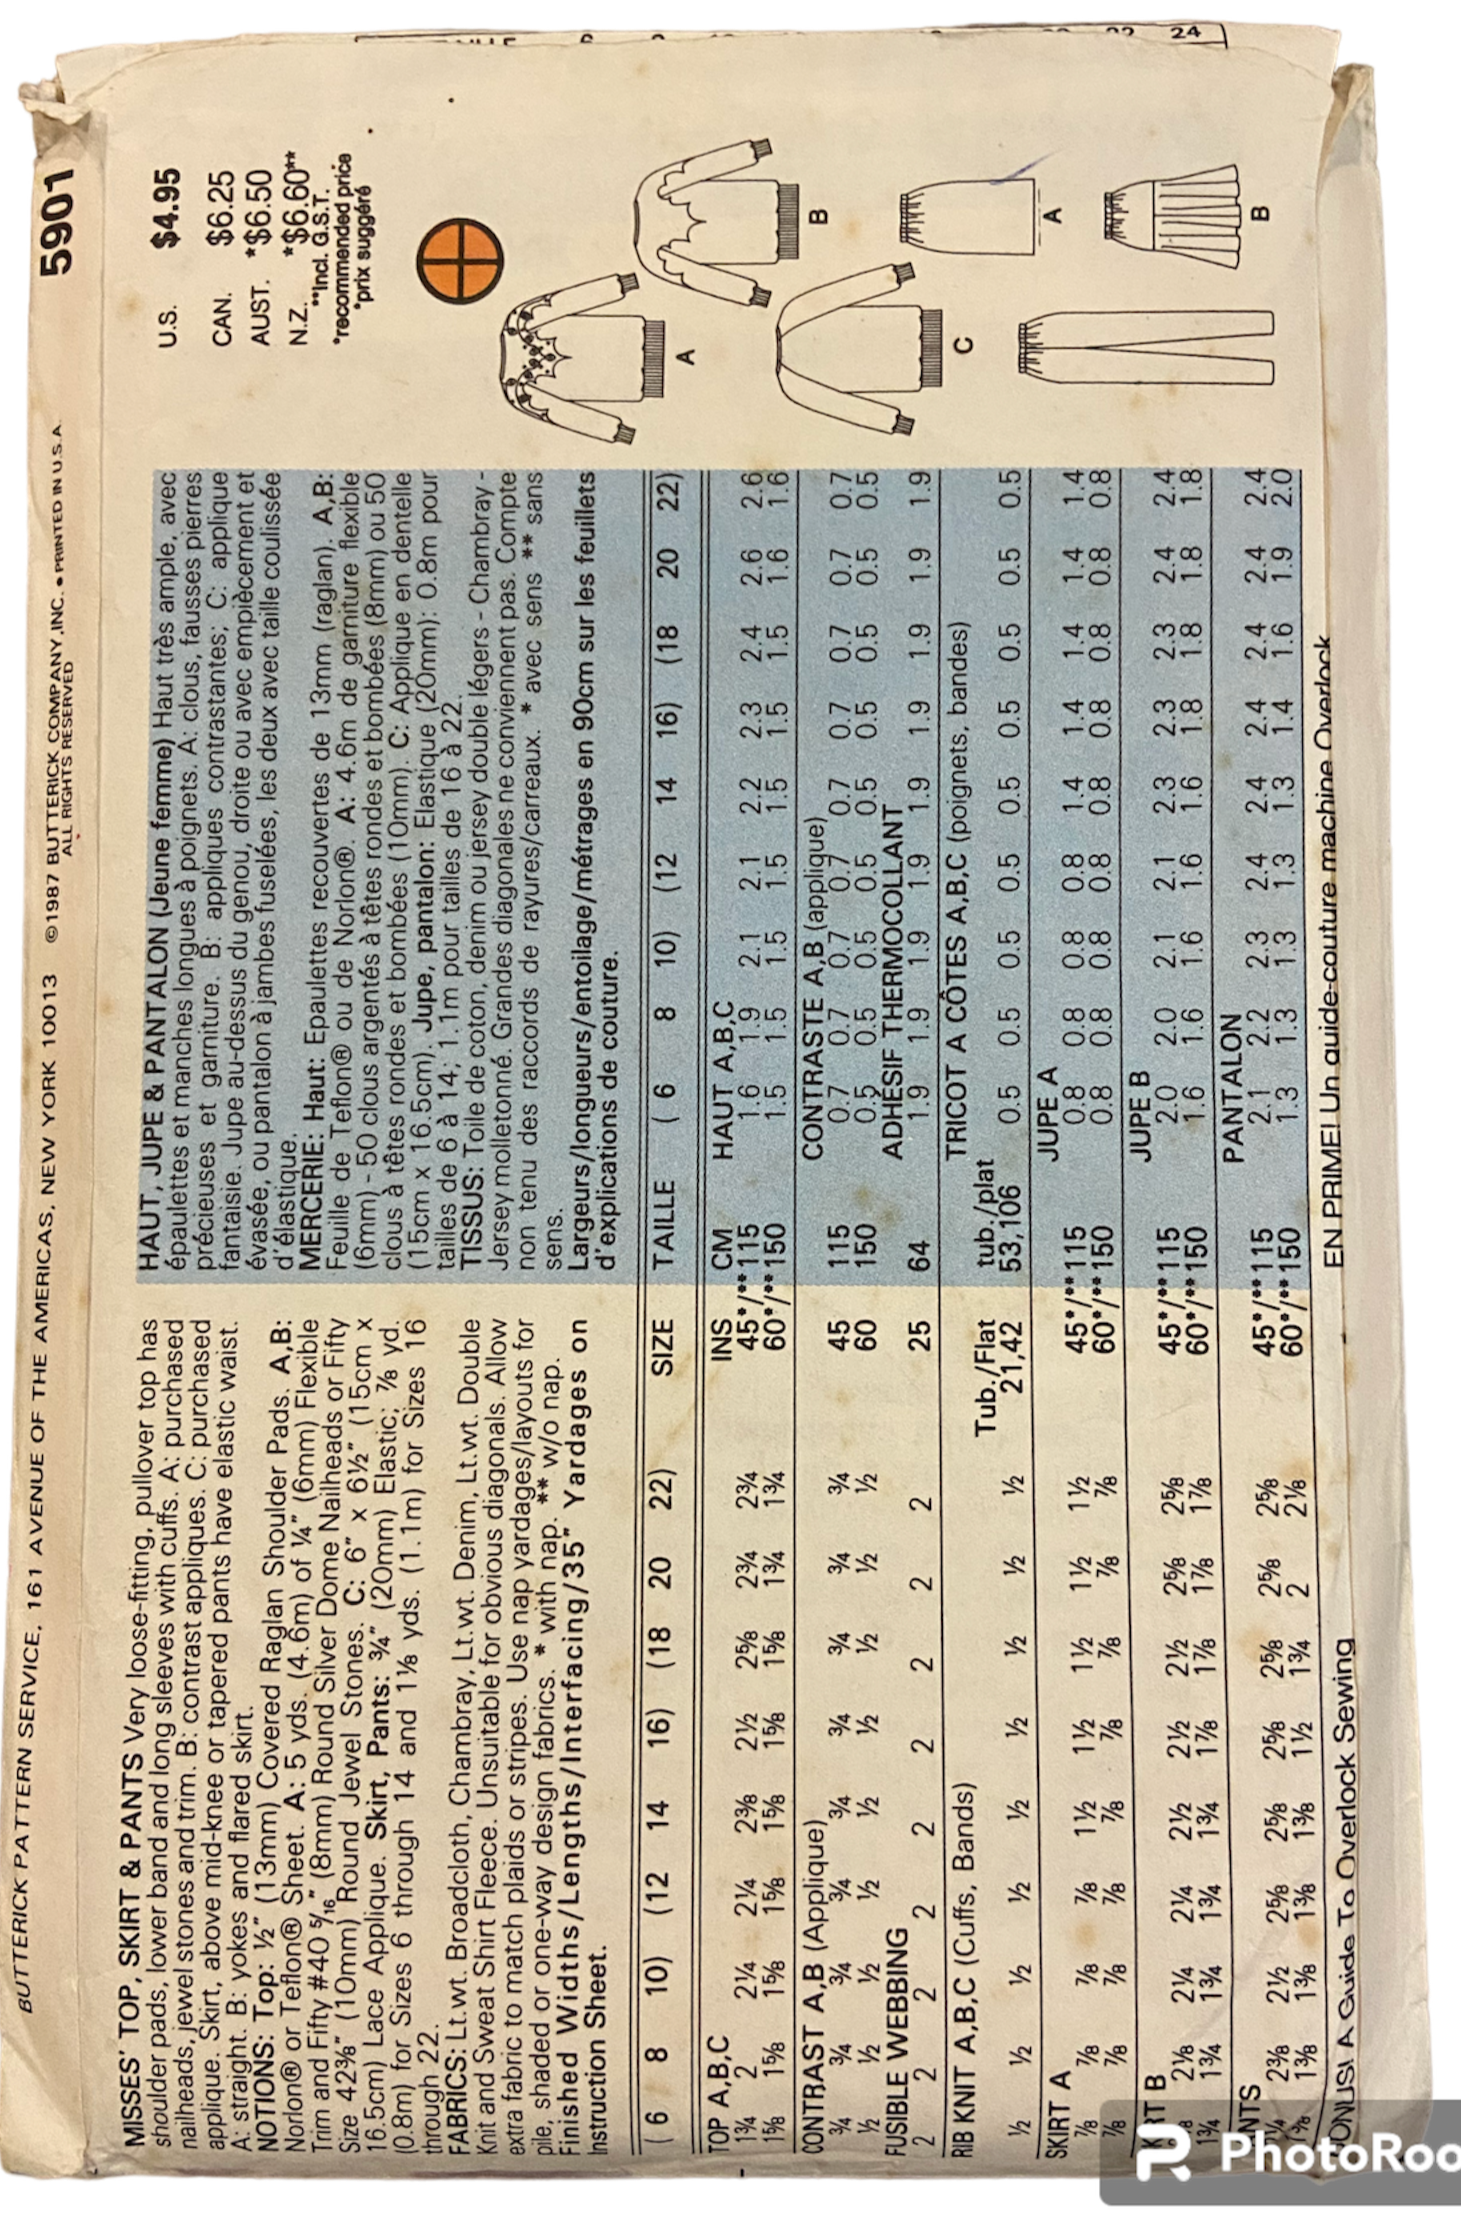 BUTTERICK PATTERN SERVICE, 161 AVENUE OF THE AMERICAS, NEW YORK 10013 ©1987 BUTTERICK COMPANY, INC. • PRINTED IN U.S.A.
ALL RIGHTS RESERVED
5901
MISSES' TOP, SKIRT & PANTS Very loose-fitting, pullover top has
shoulder pads, lower band and long sleeves with cuffs. A: purchased
nailheads, jewel stones and trim. B: contrast appliques. C: purchased
applique. Skirt, above mid-knee or tapered pants have elastic waist.
A: straight. B: yokes and flared skirt.
NOTIONS: Top: ½" (13mm) Covered Raglan Shoulder Pads. A,B:
Norlon® or Teflon® Sheet. A: 5 yds. (4.6m) of ¼" (6mm) Flexible
Trim and Fifty #40 5/16" (8mm) Round Silver Dome Nailheads or Fifty
Size 42⅜" (10mm) Round Jewel Stones. C: 6" x 6½" (15cm x
16.5cm) Lace Applique. Skirt, Pants: ¾" (20mm) Elastic; ⅞ yd.
(0.8m) for Sizes 6 through 14 and 1⅛ yds. (1.1m) for Sizes 16
through 22.
FABRICS: Lt.wt. Broadcloth, Chambray, Lt.wt. Denim, Lt.wt. Double
Knit and Sweat Shirt Fleece. Unsuitable for obvious diagonals. Allow
extra fabric to match plaids or stripes. Use nap yardages/layouts for
pile, shaded or one-way design fabrics. * with nap. ** w/o nap.
Finished Widths/Lengths/Interfacing/35" Yardages on
Instruction Sheet.
HAUT, JUPE & PANTALON (Jeune femme) Haut très ample, avec
épaulettes et manches longues à poignets. A: clous, fausses pierres
précieuses et garniture. B: appliques contrastantes; C: applique
fantaisie. Jupe au-dessus du genou, droite ou avec empiècement et
évasée, ou pantalon à jambes fuselées, les deux avec taille coulissée
d'élastique.
MERCERIE: Haut: Epaulettes recouvertes de 13mm (raglan). A,B:
Feuille de Teflon® ou de Norlon®. A: 4.6m de garniture flexible
(6mm) - 50 clous argentés à têtes rondes et bombées (8mm) ou 50
clous à têtes rondes et bombées (10mm). C: Applique en dentelle
(15cm x 16.5cm). Jupe, pantalon: Elastique (20mm): 0.8m pour
tailles de 6 à 14; 1.1m pour tailles de 16 à 22.
TISSUS: Toile de coton, denim ou jersey double légers - Chambray -
Jersey molletonné. Grandes diagonales ne conviennent pas. Compte
non tenu des raccords de rayures/carreaux. * avec sens ** sans
sens.
Largeurs/longueurs/entoilage/métrages en 90cm sur les feuillets
d'explications de couture.
U.S. $4.95
CAN. $6.25
AUST. *$6.50
N.Z. *$6.60**
**Incl. G.S.T.
*recommended price
*prix suggéré
A
B
C
A
B
( 6 8 10) (12 14 16) (18 20 22) SIZE TAILLE ( 6 8 10) (12 14 16) (18 20 22)
TOP A,B,C INS CM HAUT A,B,C
1¾ 2 2¼ 2¼ 2⅜ 2½ 2⅝ 2¾ 2¾ 45*/**115 1.6 1.9 2.1 2.1 2.2 2.3 2.4 2.6 2.6
1⅝ 1⅝ 1⅝ 1⅝ 1⅝ 1⅝ 1⅝ 1¾ 1¾ 60*/**150 1.5 1.5 1.5 1.5 1.5 1.5 1.5 1.6 1.6
CONTRAST A,B (Applique) CONTRASTE A,B (applique)
¾ ¾ ¾ ¾ ¾ ¾ ¾ ¾ ¾ 45 115 0.7 0.7 0.7 0.7 0.7 0.7 0.7 0.7 0.7
½ ½ ½ ½ ½ ½ ½ ½ ½ 60 150 0.5 0.5 0.5 0.5 0.5 0.5 0.5 0.5 0.5
FUSIBLE WEBBING ADHÉSIF THERMOCOLLANT
2 2 2 2 2 2 2 2 2 25 64 1.9 1.9 1.9 1.9 1.9 1.9 1.9 1.9 1.9
RIB KNIT A,B,C (Cuffs, Bands) Tub./Flat tub./plat TRICOT A CÔTES A,B,C (poignets, bandes)
½ ½ ½ ½ ½ ½ ½ ½ ½ 21,42 53,106 0.5 0.5 0.5 0.5 0.5 0.5 0.5 0.5 0.5
SKIRT A JUPE A
⅞ ⅞ ⅞ ⅞ 1½ 1½ 1½ 1½ 1½ 45*/**115 0.8 0.8 0.8 0.8 1.4 1.4 1.4 1.4 1.4
⅞ ⅞ ⅞ ⅞ ⅞ ⅞ ⅞ ⅞ ⅞ 60*/**150 0.8 0.8 0.8 0.8 0.8 0.8 0.8 0.8 0.8
RT B JUPE B
2⅛ 2¼ 2¼ 2½ 2½ 2½ 2⅝ 2⅝ 45*/**115 2.0 2.0 2.1 2.1 2.3 2.3 2.3 2.4 2.4
1¾ 1¾ 1¾ 1¾ 1¾ 1⅞ 1⅞ 1⅞ 1⅞ 60*/**150 1.6 1.6 1.6 1.6 1.6 1.8 1.8 1.8 1.8
NTS PANTALON
2⅜ 2½ 2⅝ 2⅝ 2⅝ 2⅝ 2⅝ 2⅝ 45*/**115 2.1 2.2 2.3 2.4 2.4 2.4 2.4 2.4 2.4
1⅜ 1⅜ 1⅜ 1⅜ 1½ 1¾ 2 2⅛ 60*/**150 1.3 1.3 1.3 1.3 1.3 1.4 1.6 1.9 2.0
BONUS! A Guide To Overlock Sewing EN PRIME! Un guide-couture machine Overlock
22 24
PhotoRoo